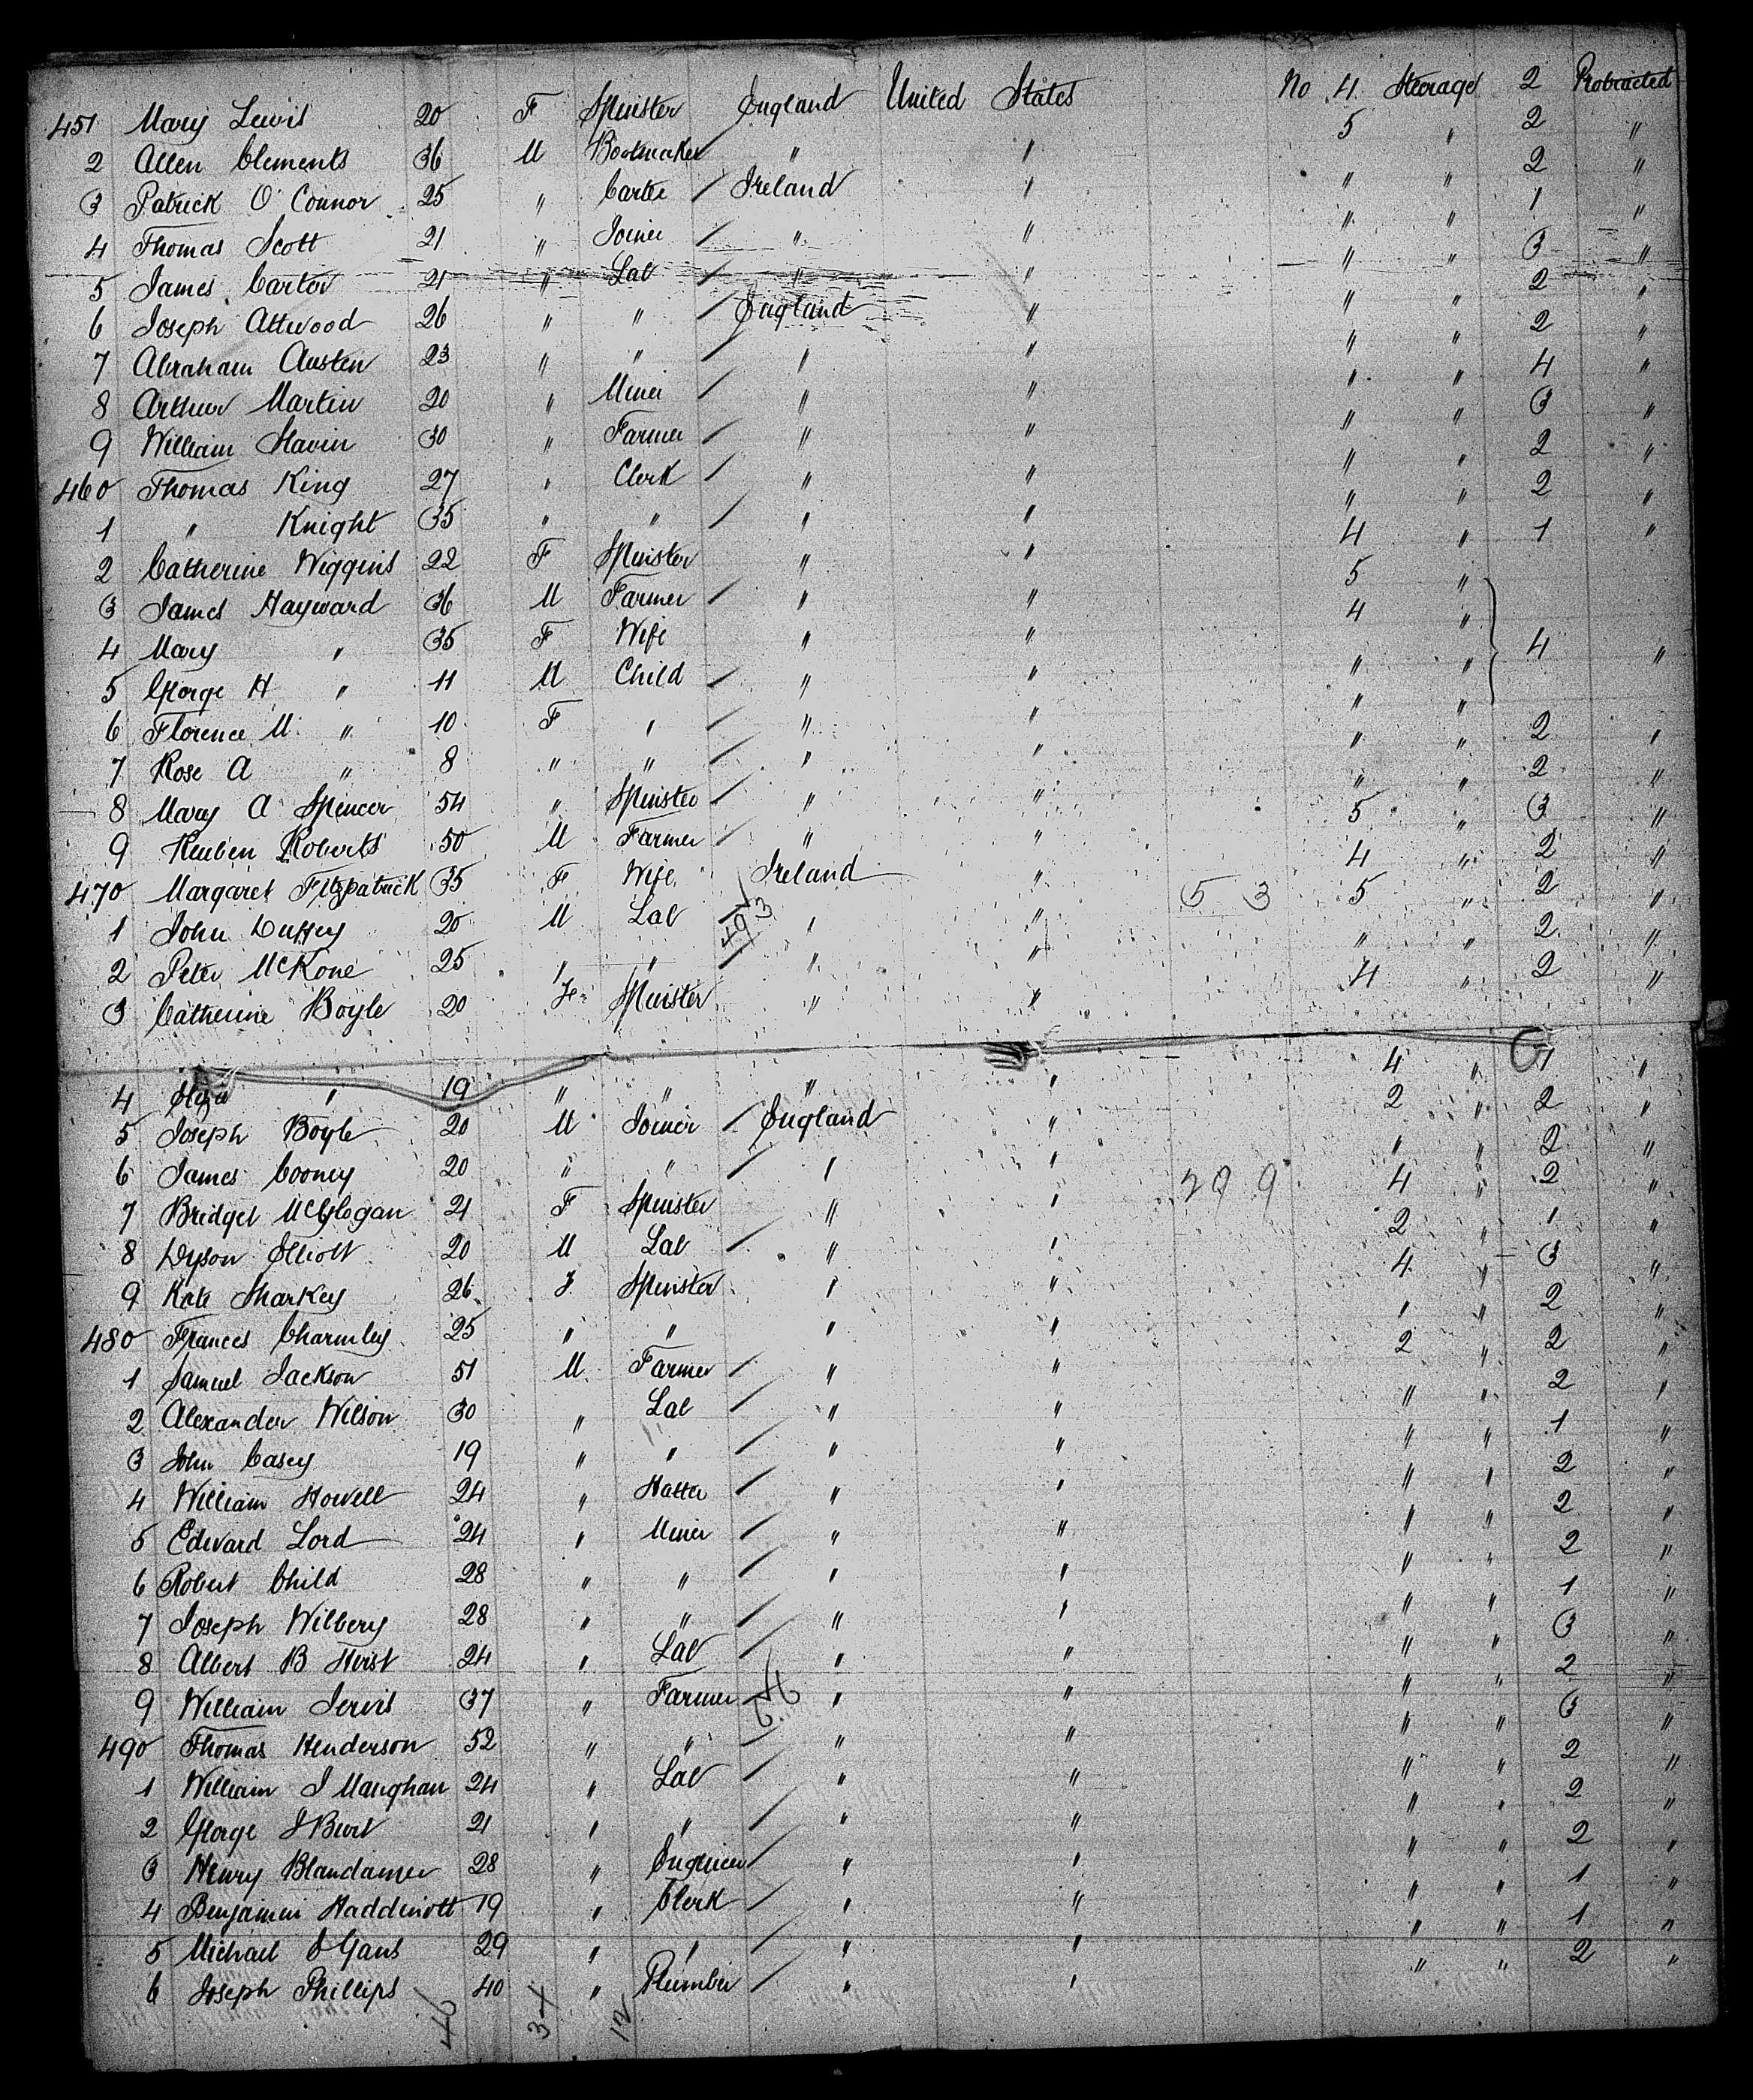 451 Mary Lewis 20 F Spinster England United States No 4 Steerage 2 Protracted
2 Allen Clements 36 M Bootmaker " " 5 " 2 "
3 Patrick O'Connor 25 " Carter Ireland " " " 2 "
4 Thomas Scott 21 " Joiner " " " " 1 "
5 James Carter 21 " Lab " " " " 3 "
6 Joseph Attwood 26 " " England " " " 2 "
7 Abraham Austen 23 " " " " " " 2 "
8 Arthur Martin 20 " Miner " " " " 4 "
9 William Slavin 30 " Farmer " " " " 3 "
460 Thomas King 27 " Clerk " " " " 2 "
1 " Knight 35 " " " " " " 2 "
2 Catherine Wiggins 22 F Spinster " " 4 " 1 "
3 James Hayward 36 M Farmer " " 5 "
4 Mary " 35 F Wife " " 4 "
5 George H " 11 M Child " " " " 4 "
6 Florence M " 10 F " " " " "
7 Rose A " 8 " " " " " " 2 "
8 Mary A Spencer 54 " Spinster " " " " 2 "
9 Reuben Roberts 50 M Farmer " " 5 " 3 "
470 Margaret Fitzpatrick 35 F Wife Ireland " 4 " 2 "
1 John Duffey 20 M Lab 493 " " 5 3 5 " 2 "
2 Peter McKone 25 " " " " " " 2 "
3 Catherine Boyle 20 F Spinster " " 4 " 2 "
4 " 19 " " " " 4 " 1 "
5 Joseph Boyle 20 M Joiner England " 2 " 2 "
6 James Cooney 20 " " " " " " 2 "
7 Bridget McGlogan 21 F Spinster " " 299 4 " 2 "
8 Dyson Elliott 20 M Lab " " 2 " 1 "
9 Kate Sharkey 26 F Spinster " " 4 " 3 "
480 Frances Charmley 25 " " " " " " 2 "
1 Samuel Jackson 51 M Farmer " " 2 " 2 "
2 Alexander Wilson 30 " Lab " " " " 2 "
3 John Casey 19 " " " " " " 1 "
4 William Howell 24 " Hatter " " " " 2 "
5 Edward Lord 24 " Miner " " " " 2 "
6 Robert Child 28 " " " " " " 2 "
7 Joseph Wilbery 28 " " " " " " 1 "
8 Albert B Hirst 24 " Lab " " " " 3 "
9 William Jervis 37 " Farmer " " " " 2 "
490 Thomas Henderson 52 " " " " " " 3 "
1 William J Maughan 24 " Lab " " " " 2 "
2 George J Burt 21 " " " " " " 2 "
3 Henry Blandamer 28 " Engineer " " " " 2 "
4 Benjamin Haddinott 19 " Clerk " " " " 1 "
5 Michael 29 " " " " " " 1 "
6 Joseph Phillips 40 " Plumber " " " " 2 "
46 34 12